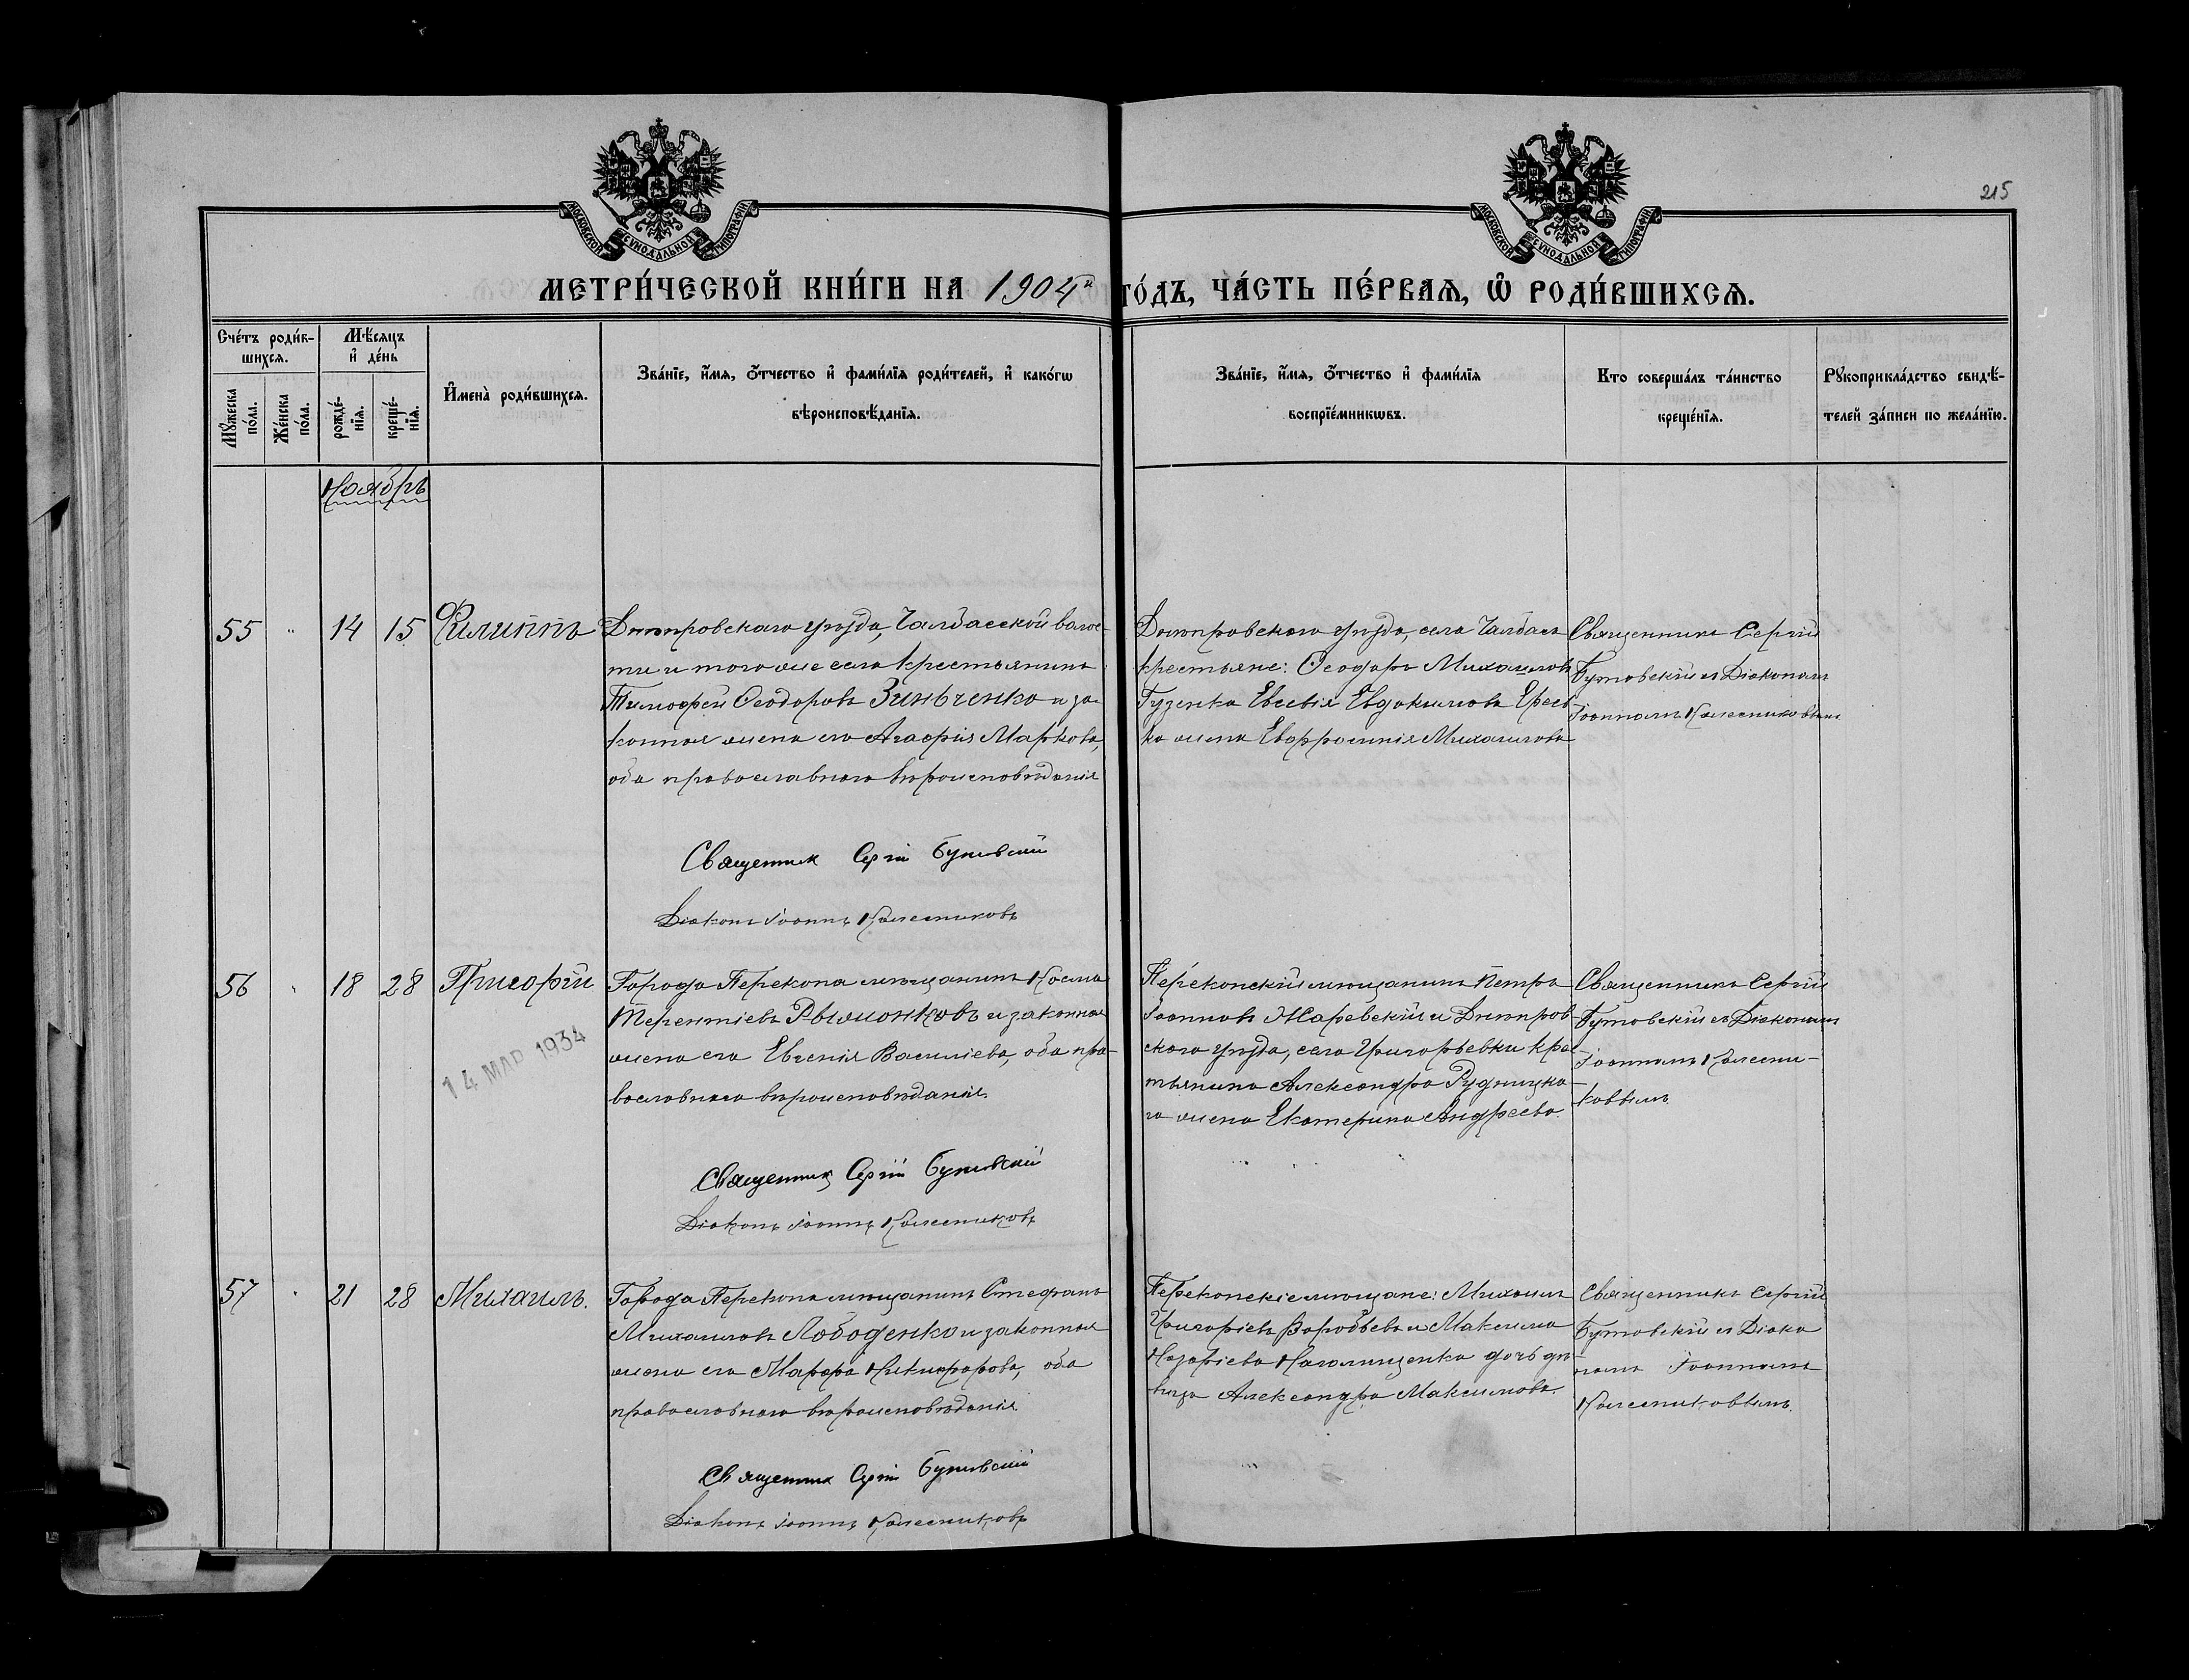 215
МОСКОВСКОЙ СѴНОДАЛЬНОЙ ТИПОГРАФІИ
МОСКОВСКОЙ СѴНОДАЛЬНОЙ ТИПОГРАФІИ
МЕТРИ́ЧЕСКОЙ КНИ́ГИ НА 1904й ГО́ДЪ, ЧА́СТЬ ПЕ́РВАѦ, Ѡ҆ РОДИ́ВШИХСѦ.
Сче́тъ роди́в-
шихсѧ.
Мꙋ́жеска по́ла.
Же́нска по́ла.
Мѣ́сѧцъ
и҆ де́нь
рожде́-
нїѧ.
креще́-
нїѧ.
И҆мена̀ роди́вшихсѧ.
Зва́нїе, и҆́мѧ, ѻ҆́тчество и҆ фами́лїѧ роди́телей, и҆ како́гѡ
вѣроисповѣ́данїѧ.
Зва́нїе, и҆́мѧ, ѻ҆́тчество и҆ фами́лїѧ
воспрїе́мникѡвъ.
Кто соверша́лъ та́инство
креще́нїѧ.
Рꙋкоприкла́дство свидѣ́-
телей за́писи по жела́нїю.
Ноябрь
55 " 14 15 Филиппъ
Днѣпровскаго уѣзда, Чалбасской волос-
ти и того же села крестьянинъ
Тимофей Ѳеодоровъ Зинченко и за-
конная жена его Агафія Маркова,
оба православнаго вѣроисповѣданія
Священник Сергій Бутовскій
Діаконъ Іоаннъ Колесниковъ
Днѣпровскаго уѣзда, села Чалбасъ
крестьяне: Ѳеодоръ Михаиловъ
Гузенко Евсевія Евдокимова
ко жена Евфросинія Михаилова
Священникъ Сергій
Бутовскій съ Діакономъ
Іоанномъ Колесниковымъ
56 " 18 28 Григорій
14 МАР 1934
Города Перекопа мѣщанинъ Косма
Терентіевъ Рыжонковъ и законная
жена его Евгенія Василіева, оба пра-
вославнаго вѣроисповѣданія.
Священник Сергій Бутовскій
Діаконъ Іоаннъ Колесниковъ
Перекопскій мѣщанинъ Петръ
Іоанновъ Жаревскій и Днѣпров-
скаго уѣзда, села Григорьевки крес-
тьянина Александра Рудницка-
го жена Екатерина Андреева.
Священникъ Сергій
Бутовскій съ Діакономъ
Іоанномъ Колесни-
ковымъ.
57 " 21 28 Михаилъ.
Города Перекопа мѣщанинъ Стефанъ
Михаиловъ Лободенко и законная
жена его Марфа Никифорова, оба
православнаго вѣроисповѣданія
Священник Сергій Бутовскій
Діаконъ Іоаннъ Колесниковъ
Перекопскіе мѣщане: Михаилъ
Григоріевъ Воробьевъ и Максима
Назаріева дочь дѣ-
вица Александра Максимова.
Священникъ Сергій
Бутовскій съ Діако
номъ Іоанномъ
Колесниковымъ.